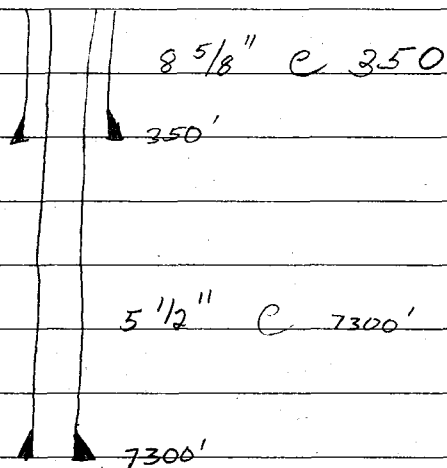 8 5/8" @ 350
350'
5 1/2" @ 7300'
7300'